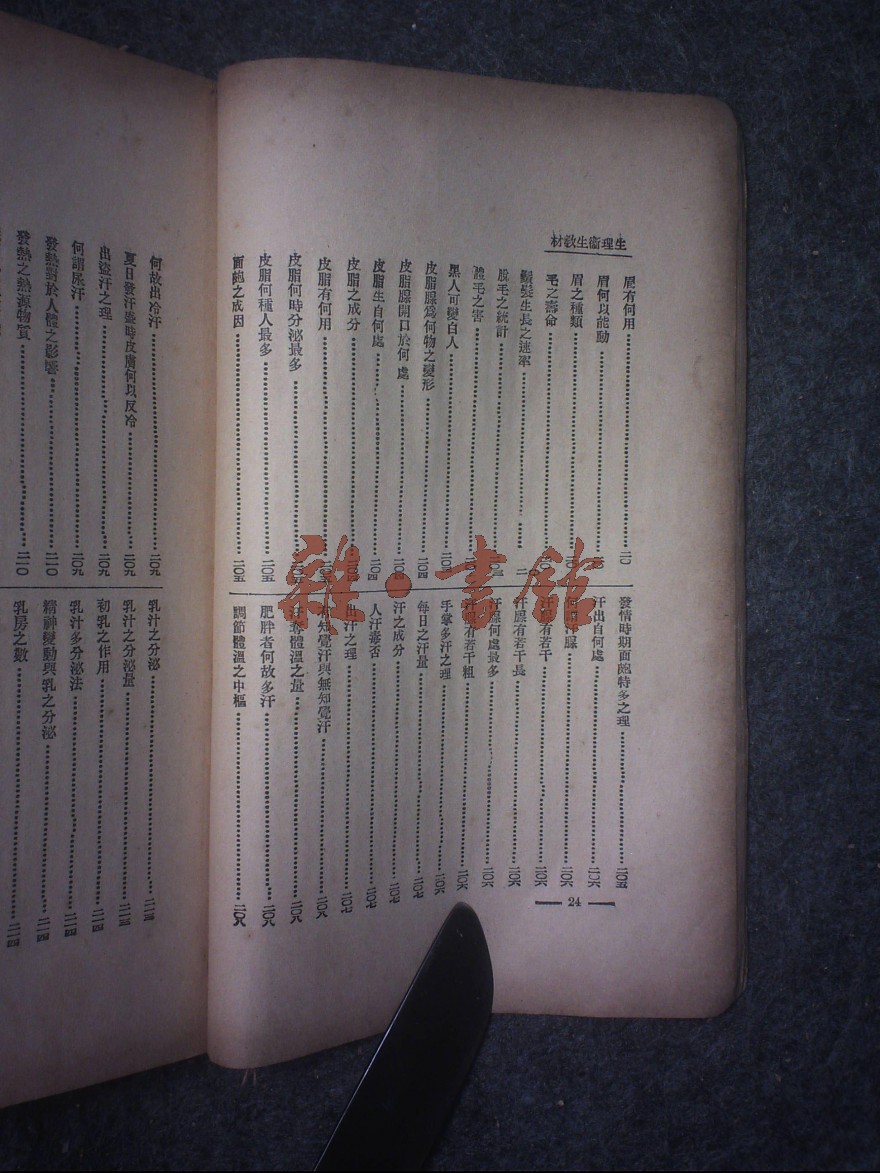 生理衞生教材
眉有何用……二〇
眉何以能動……
眉之種類……
毛之壽命……
鬚髮生長之速率……
脫毛之統計……
體毛之害……
黑人可變白人……
皮脂腺爲何物之變形……二〇四
皮脂腺開口於何處……二〇四
皮脂生自何處……二〇四
皮脂之成分……
皮脂有何用……
皮脂何時分泌最多……
皮脂何種人最多……二〇五
面皰之成因……二〇五
發情時期面皰特多之理……二〇五
汗出自何處……二〇六
何謂汗腺……二〇六
汗腺有若干……二〇六
汗腺有若干長……二〇六
汗腺何處最多……二〇六
汗腺有若干粗……二〇六
手掌多汗之理……二〇六
每日之汗量……二〇七
汗之成分……二〇七
人汗毒否……二〇七
出汗之理……二〇七
有知覺汗與無知覺汗……二〇八
汗奪體溫之量……二〇八
肥胖者何故多汗……二〇八
調節體溫之中樞……二〇八
24
何故出冷汗……二〇九
夏日發汗盛時皮膚何以反冷……二〇九
出盜汗之理……二〇九
何謂尿汗……二〇九
發熱對於人體之影響……二一〇
發熱之熱源物質……二一〇
乳汁之分泌……二一三
乳汁之分泌量……二一三
初乳之作用……二一四
乳汁多分泌法……二一四
精神變動與乳之分泌……二一四
乳房之數……二一四
雜·書館